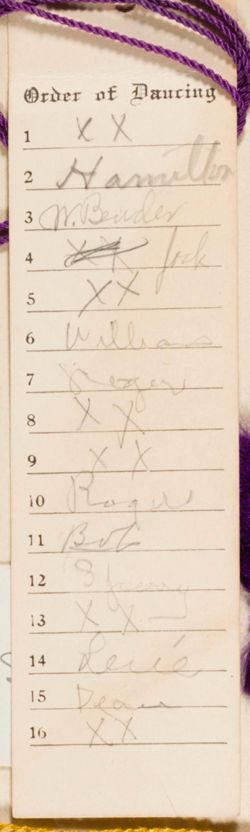 Order of Dancing
1 X X
2 Hamilton
3 W. Bender
4 Jack
5 XX
6 Williams
7
8 X X
9 X X
10 Roger
11 Bob
12
13 X X
14
15 Dean
16 XX